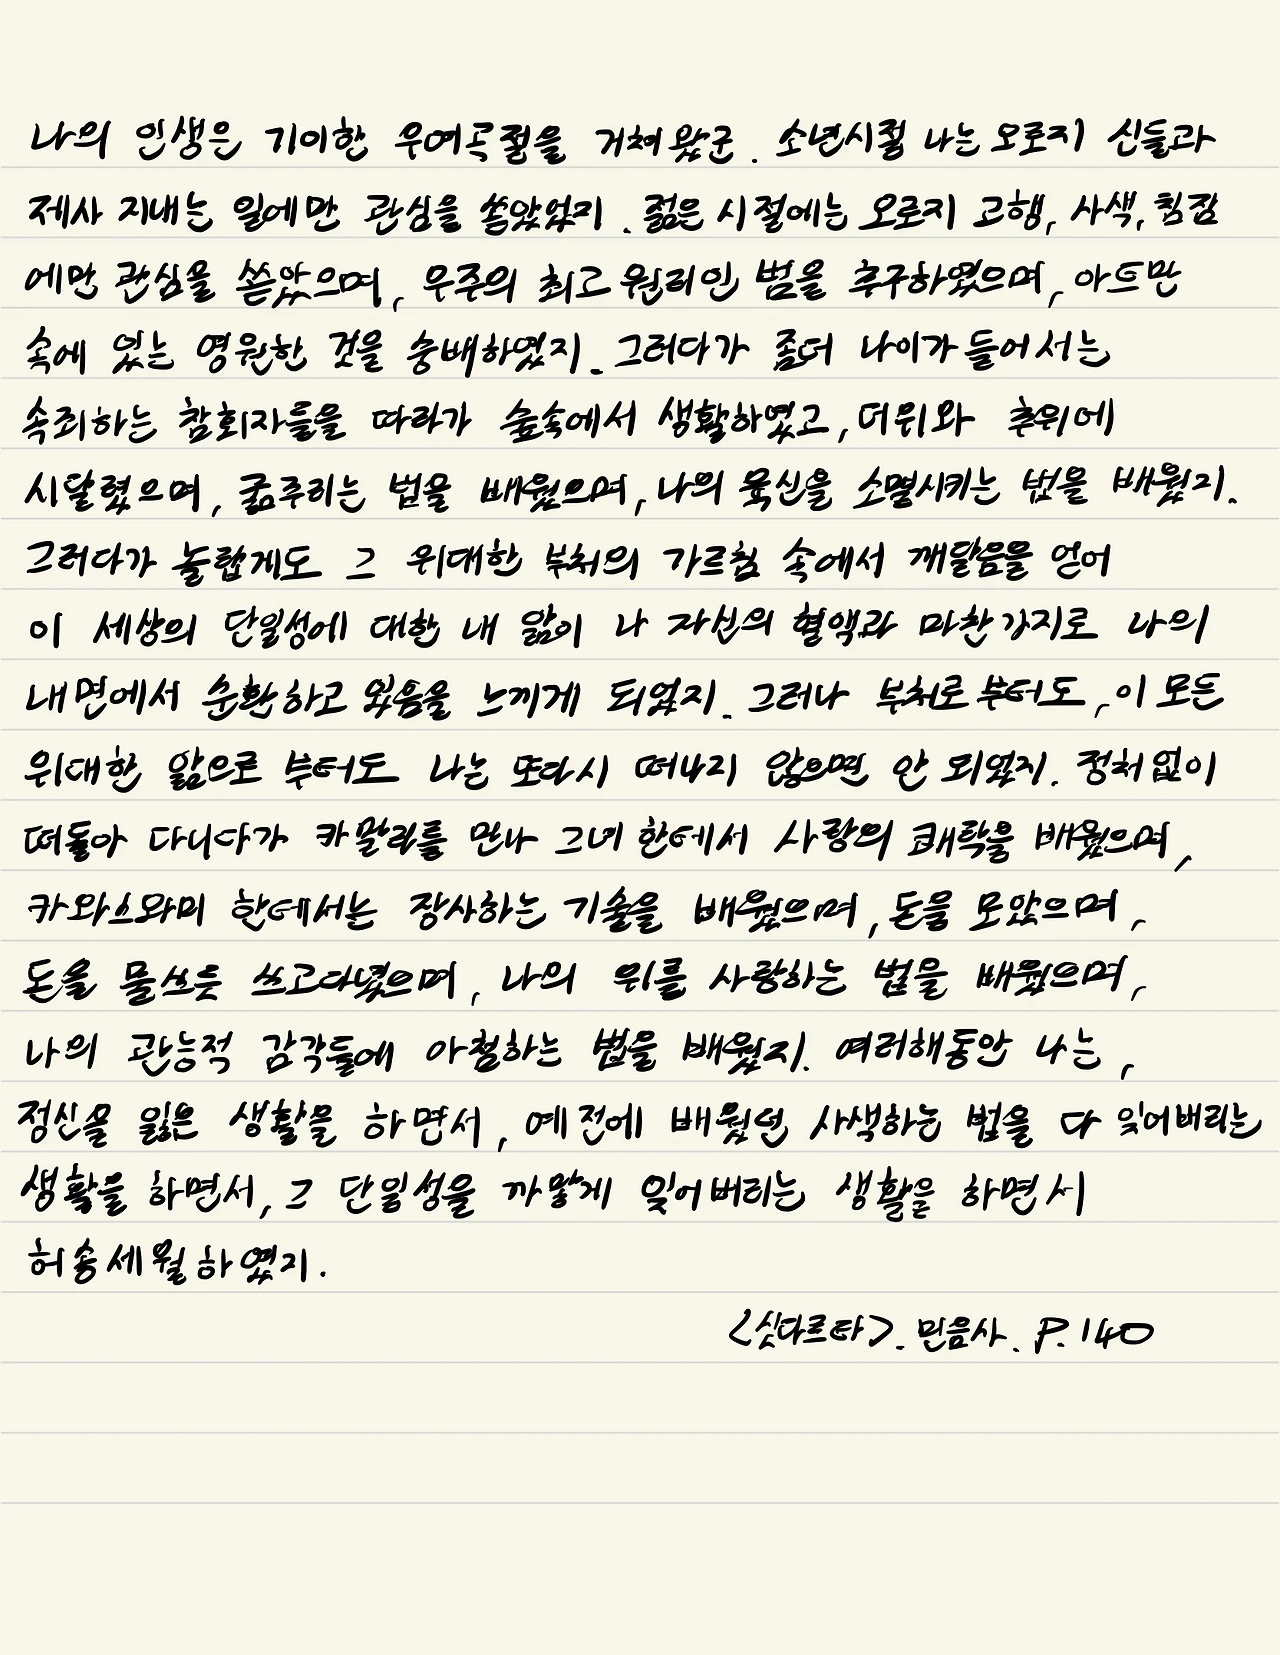 나의 인생은 기이한 우여곡절을 거쳐 왔군. 소년시절 나는 오로지 신들과
제사 지내는 일에만 관심을 쏟았었지. 젊은 시절에는 오로지 고행, 사색, 침잠
에만 관심을 쏟았으며, 우주의 최고 원리인 범을 추구하였으며, 아트만
속에 있는 영원한 것을 숭배하였지. 그러다가 좀더 나이가 들어서는
속죄하는 참회자들을 따라가 숲속에서 생활하였고, 더위와 추위에
시달렸으며, 굶주리는 법을 배웠으며, 나의 육신을 소멸시키는 법을 배웠지.
그러다가 놀랍게도 그 위대한 부처의 가르침 속에서 깨달음을 얻어
이 세상의 단일성에 대한 내 앎이 나 자신의 혈액과 마찬가지로 나의
내면에서 순환하고 있음을 느끼게 되었지. 그러나 부처로부터도, 이 모든
위대한 앎으로부터도 나는 또다시 떠나지 않으면 안 되었지. 정처없이
떠돌아 다니다가 카말라를 만나 그녀한테서 사랑의 쾌락을 배웠으며,
카와스와미 한테서는 장사하는 기술을 배웠으며, 돈을 모았으며,
돈을 물쓰듯 쓰고다녔으며, 나의 위를 사랑하는 법을 배웠으며,
나의 관능적 감각들에 아첨하는 법을 배웠지. 여러해동안 나는,
정신을 잃은 생활을 하면서, 예전에 배웠던 사색하는 법을 다 잊어버리는
생활을 하면서, 그 단일성을 까맣게 잊어버리는 생활을 하면서
허송세월하였지.
<싯다르타>. 민음사. P.140